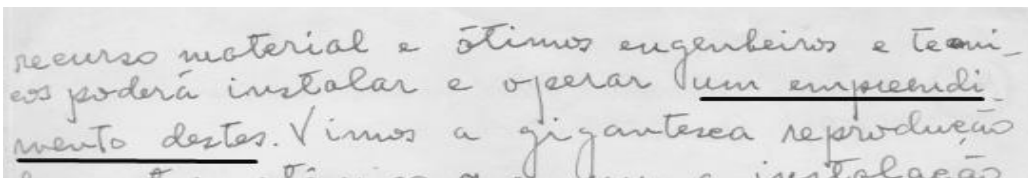 recurso material e ótimos engenheiros e tecni-
cos poderá instalar e operar um empreendi-
mento destes. Vimos a gigantesca reprodução
a instalação